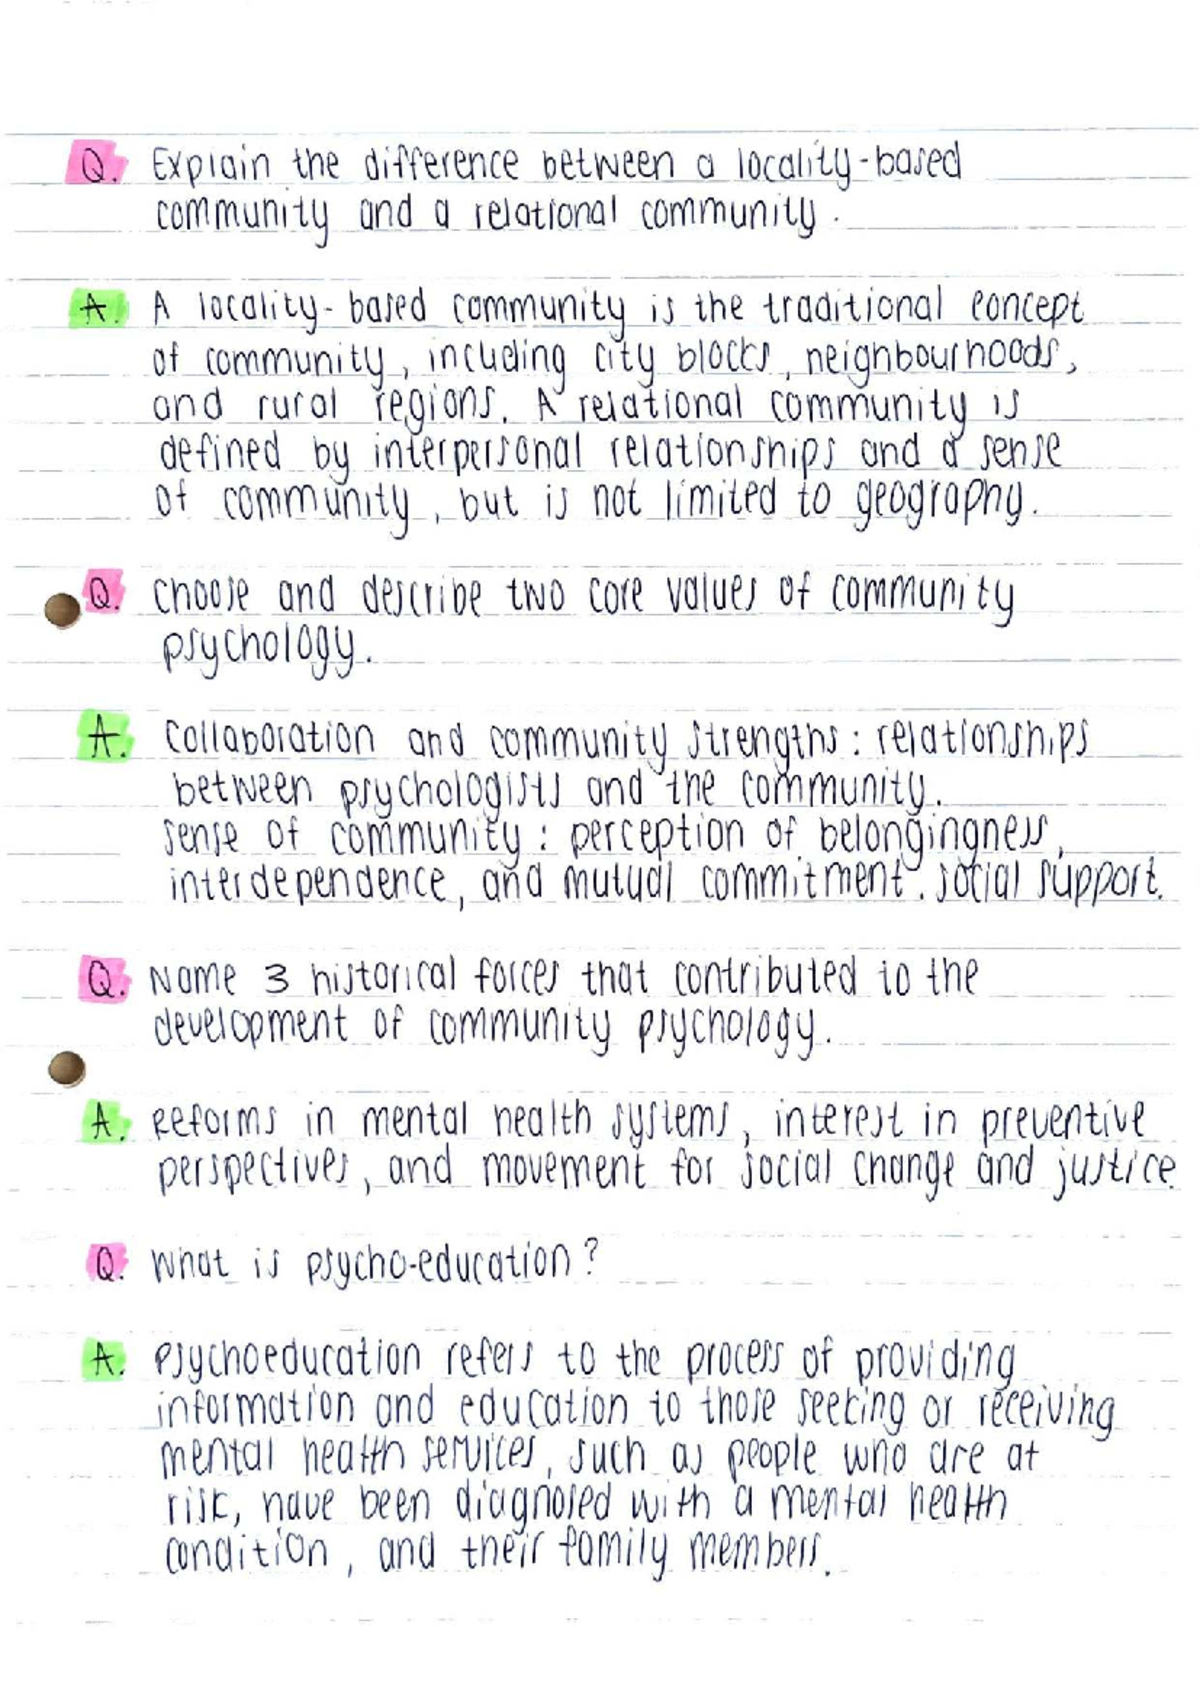 Q. Explain the difference between a locality-based
community and a relational community.
A. A locality-based community is the traditional concept
of community, including city blocks, neighbourhoods,
and rural regions. A relational community is
defined by interpersonal relationships and a sense
of community, but is not limited to geography.
Q. Choose and describe two core values of community
psychology.
A. Collaboration and community strengths: relationships
between psychologists and the community.
sense of community: perception of belongingness,
interdependence, and mutual commitment. social support.
Q. Name 3 historical forces that contributed to the
development of community psychology.
A. Reforms in mental health systems, interest in preventive
perspectives, and movement for social change and justice.
Q. What is psycho-education?
A. Psychoeducation refers to the process of providing
information and education to those seeking or receiving
mental health services, such as people who are at
risk, have been diagnosed with a mental health
condition, and their family members.